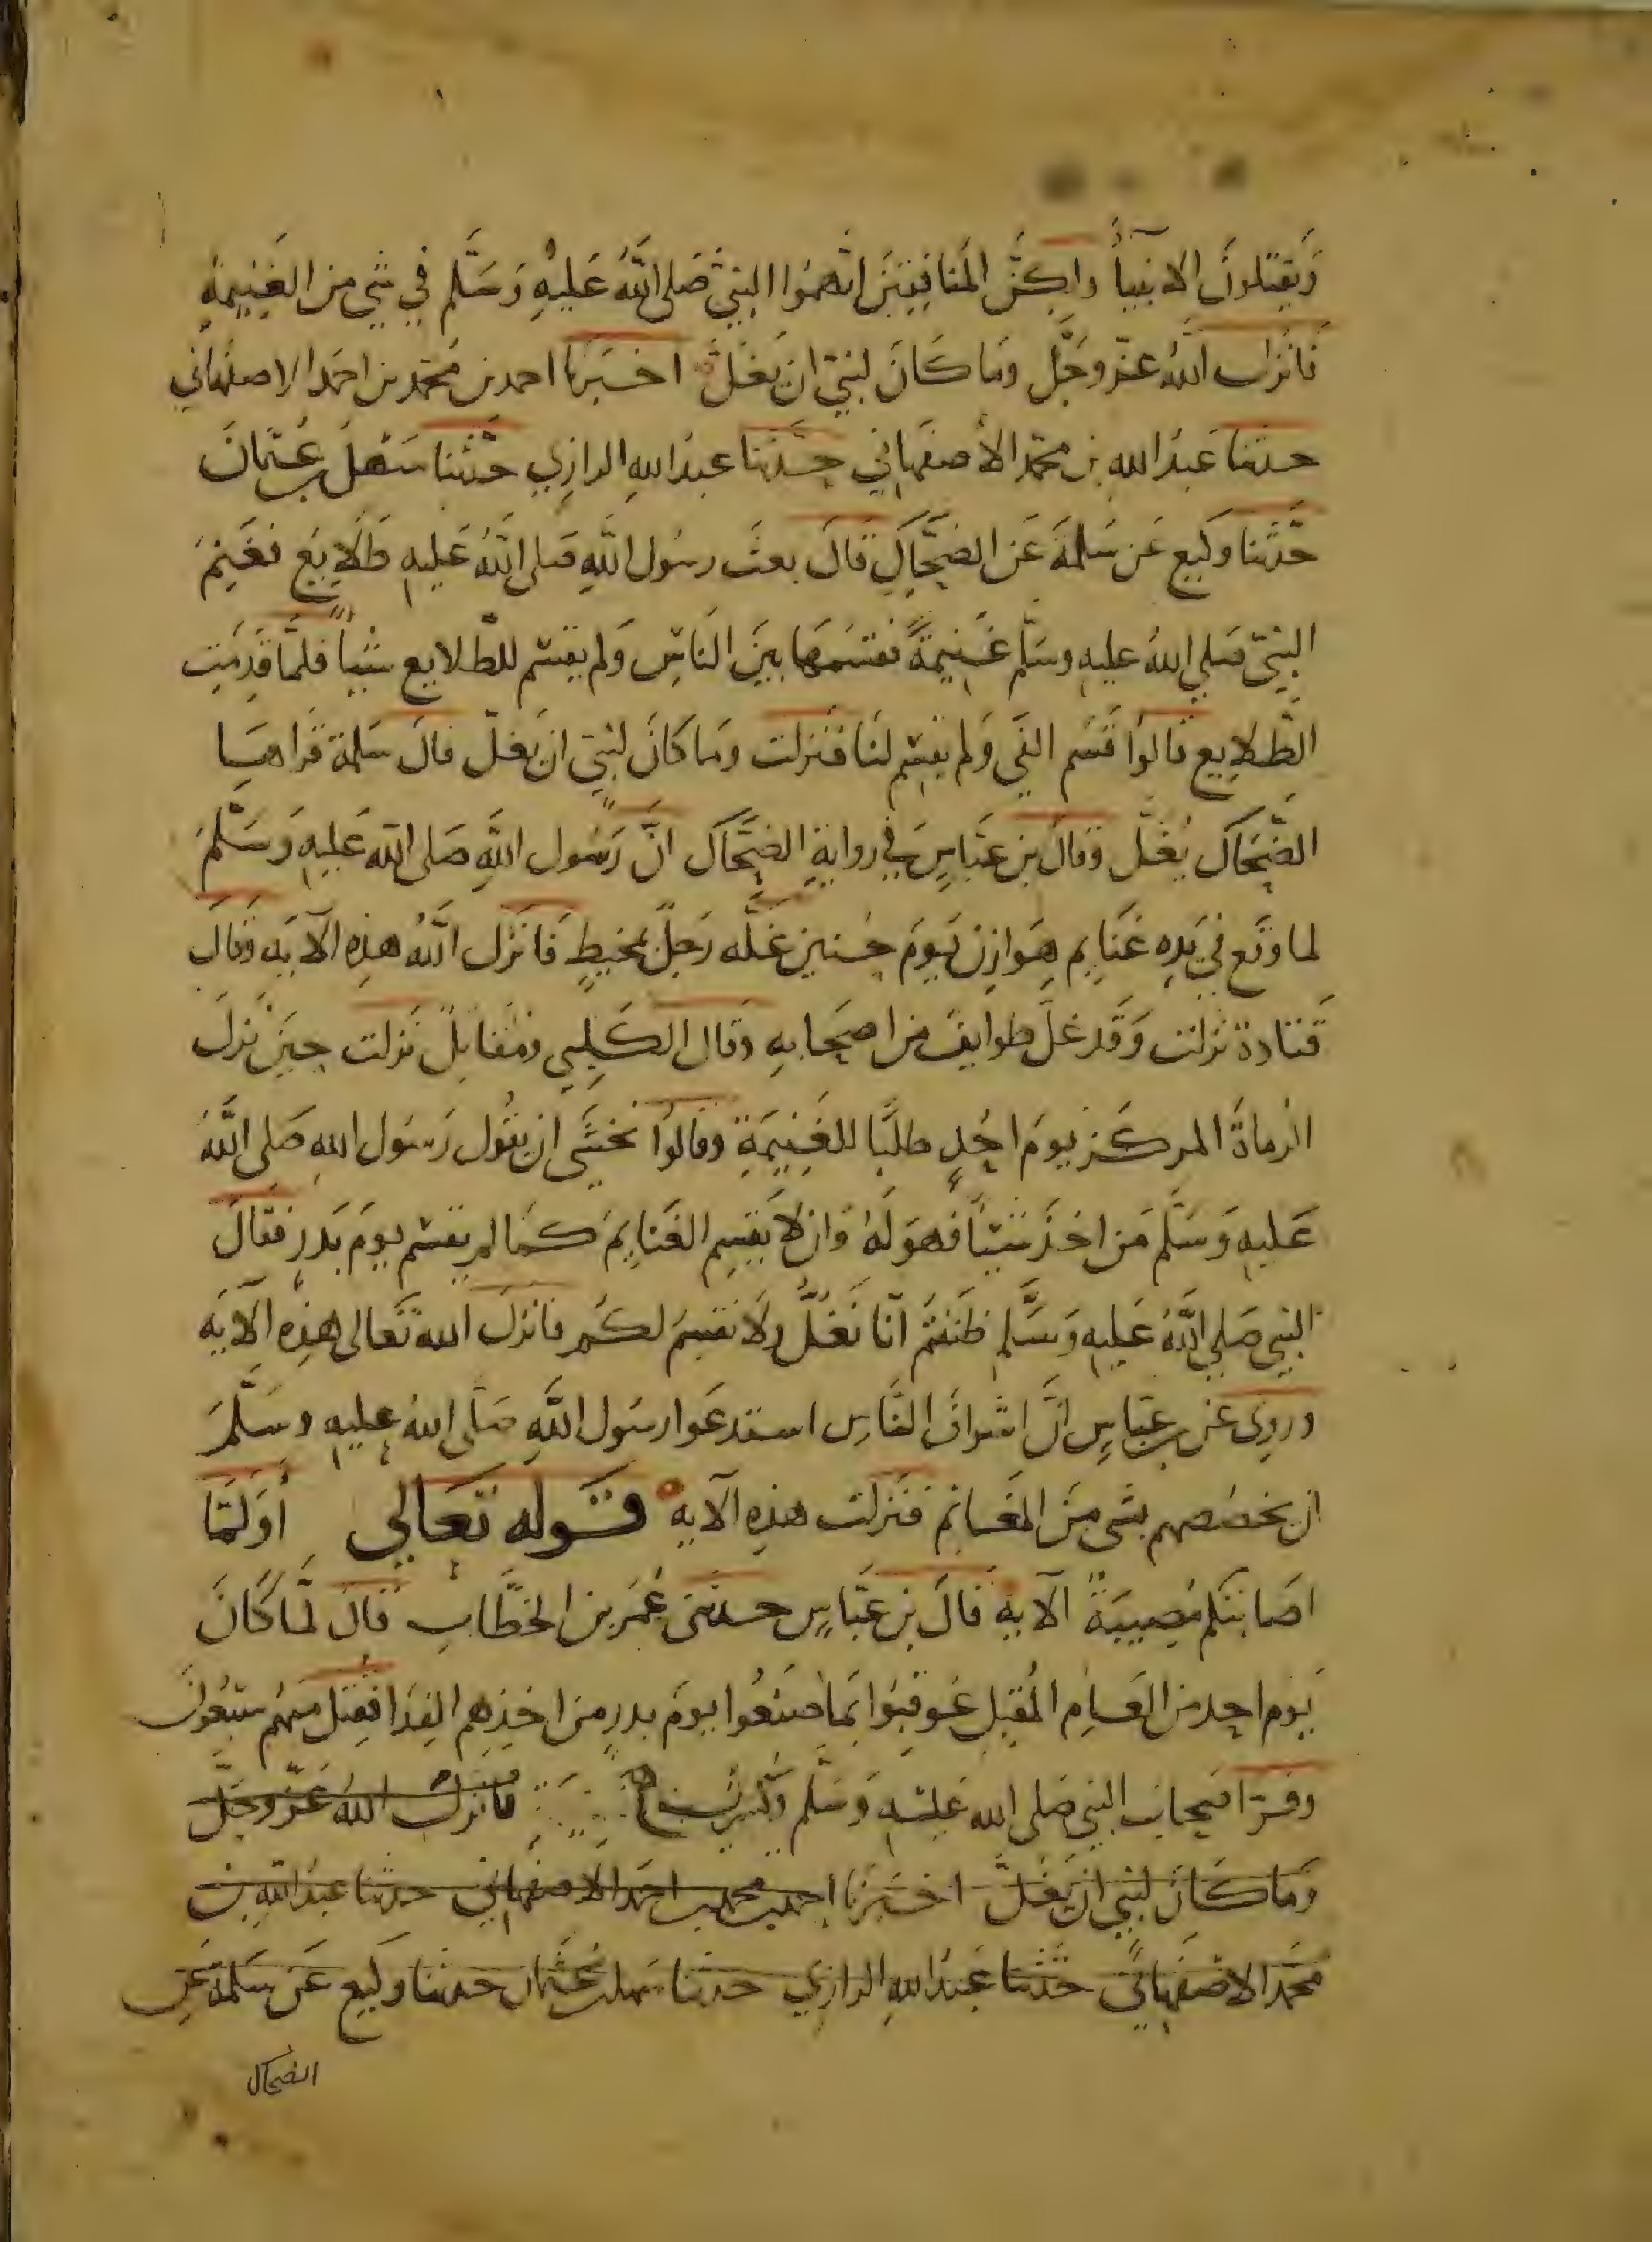 وَيَقتلونَ الانبيآءَ ولكِنَّ المُنَافِقِينَ اتَّهمُوا النبيَّ صَلى اللَّهُ عَليهِ وَسَلَّم فِي شَيءٍ مِن الغَنِيمةِ
فَانزَل اللَّهُ عزّ وَجَّل وَمَا كَانَ لنبيّ ان يَغُلَّ اخبَرنا احمد بن مُحمَّد بن احمَد الاصفهاني
حدثنا عَبدُ الله بن محمّد الأصفهَاني حدَّثنا عبدُ اللهِ الرازِي حدَّثنا سَهلُ بن عُثمانَ
حدَّثنا وكيع عَن سَلمَةَ عَن الضحَّاكِ قالَ بعثَ رسُول اللهِ صَلى اللَّهُ عَليهِ طَلَايِعَ فغَنِمَ
النبيّ صَلي اللهُ عليهِ وسَلّم غَنِيمةً فقسَمهَا بينَ النَاسِ وَلم يقسم للطّلايع شَيْاً فلمَّا قَدِمَت
الطّلايع قالوُا قَسَم الفَي وَلم يقسِم لنَا فنَزلت وَمَا كانَ لنبيّ ان يغلّ قالَ سَلمة قراهَا
الضَّحَاك يُغَل وَقالَ بن عبَّاسٍ في روايةِ الضحَّاك انَّ رَسُول اللَّهِ صَلى اللهُ عَليهِ وَسَلَّمَ
لما وقَع في يَدِه غَنايم هَوازِن يَومَ حُنينٍ غلَّه رَجلٌ بمخيطٍ فانزَل اللَّهُ هذِه الآيَة وَقالَ
قتادة نزلت وَقَد غلَّ طوايفُ من اصحَابهِ وَقال الكَلبِي ومُقاتِلٌ نَزلت حِينَ نزلَ
الرُماةُ المركَز يومَ احُدٍ طلبًا للغنِيمَةِ وقالوُا نخشَى ان يقُول رَسُول اللهِ صَلى اللَّهُ
عَليهِ وَسَلَّم مَن اخذَ شيْئاً فهوَ لَهُ وَان لَا يقسِم الغَنايِمَ كمَا لم يقسم يومَ بَدرٍ فقالَ
النبي صَلى اللَّهُ عَليهِ وَسَلَّم ظننتمُ انّا نَغُلُّ ولَا نقسِمُ لكُم فانزلَ الله تَعالى هذِه الآيَة
وروِي عن بن عبّاسٍ انَّ اشراف النَّاسِ استدعَوا رسُول اللَّهِ صَلّى اللهُ عليهِ وسَلّمَ
ان يخصّصهم بشَي مِنَ المغَانِم فنَزلت هذِهِ الآية قَوله تَعَالى أوَلَمَّا
اصَابتكم مُصِيبَةٌ الآيةِ قالَ بن عبَّاسٍ حدثَني عُمَر بن الخطَّاب قالَ لمَّا كَانَ
يَوم احدٍ من العَامِ المُقبِل عُوقِبُوا بمَا صنَعُوا يومَ بدرٍ من اخذِهم الفِدَا فقتل منهُم سَبعُونَ
وفرّ اصحابُ النبي صَلى الله عَليهِ وَسَلم وَكُسِرَت فانزَل اللهُ عَزّ وجَلّ
وَمَا كَانَ لنبي ان يَغُلَّ اخبَرنا احمد بن محمد بن احمَد الاصفهَاني حدثنا عبدُ اللهِ بن
محمَّد الاصْفَهاني حدَّثنا عبدُ اللهِ الرازِي حدثنا سَهل بن عُثمان حدثنا وكيع عَن سَلمةَ عَن
الضحاك